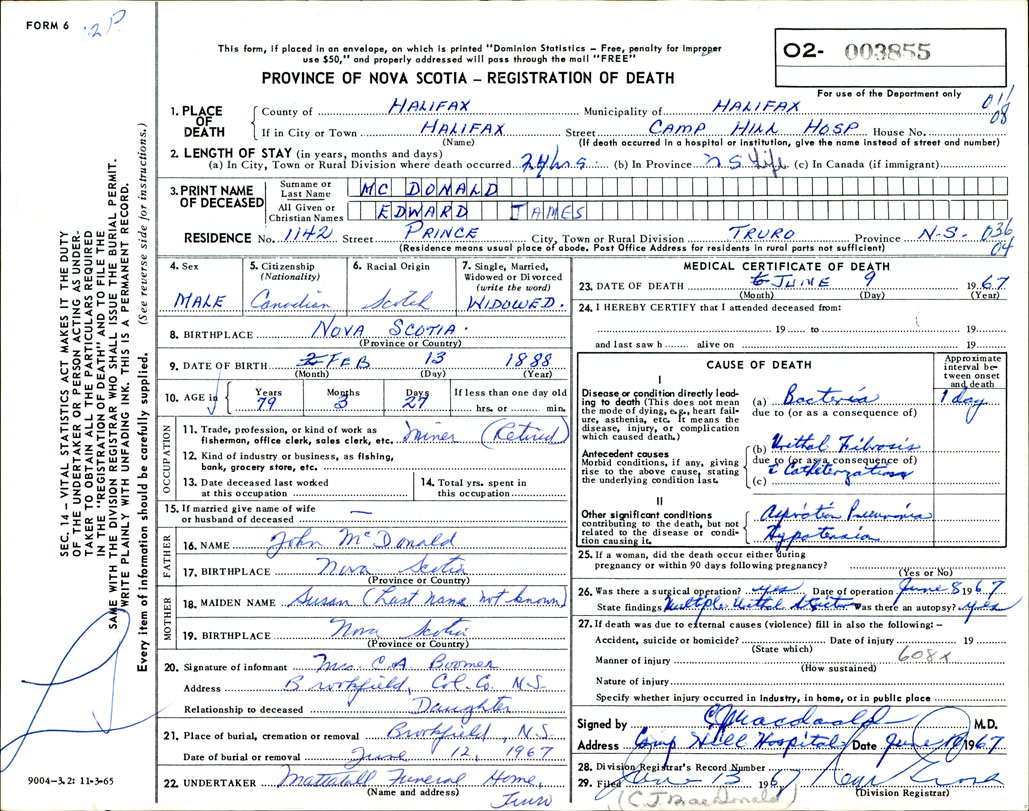 FORM 6 12 P.
This form, if placed in an envelope, on which is printed "Dominion Statistics – Free, penalty for improper
use $50," and properly addressed will pass through the mail "FREE"
PROVINCE OF NOVA SCOTIA – REGISTRATION OF DEATH
02- 003855
For use of the Department only
011
08
1. PLACE OF DEATH
County of HALIFAX Municipality of HALIFAX
If in City or Town HALIFAX Street CAMP HILL HOSP House No.
(Name) (If death occurred in a hospital or institution, give the name instead of street and number)
2. LENGTH OF STAY (in years, months and days)
(a) In City, Town or Rural Division where death occurred 24 hrs. (b) In Province N.S. Life (c) In Canada (if immigrant)
3. PRINT NAME OF DECEASED
Surname or Last Name MC DONALD
All Given or Christian Names EDWARD JAMES
RESIDENCE No. 1142 Street PRINCE City, Town or Rural Division TRURO Province N.S. 036
04
(Residence means usual place of abode. Post Office Address for residents in rural parts not sufficient)
4. Sex
MALE
5. Citizenship
(Nationality)
Canadian
6. Racial Origin
Scotch
7. Single, Married,
Widowed or Divorced
(write the word)
WIDOWED.
8. BIRTHPLACE NOVA SCOTIA.
(Province or Country)
9. DATE OF BIRTH FEB 13 1888
(Month) (Day) (Year)
10. AGE in
Years Months Days If less than one day old
79 3 27 hrs. or min.
OCCUPATION
11. Trade, profession, or kind of work as
fisherman, office clerk, sales clerk, etc. miner (Retired)
12. Kind of industry or business, as fishing,
bank, grocery store, etc.
13. Date deceased last worked
at this occupation
14. Total yrs. spent in
this occupation
15. If married give name of wife
or husband of deceased —
FATHER
16. NAME John McDonald
17. BIRTHPLACE Nova Scotia
(Province or Country)
MOTHER
18. MAIDEN NAME Susan (Last name not known)
19. BIRTHPLACE Nova Scotia
(Province or Country)
20. Signature of informant Mrs. C A Boomer
Address Brookfield, Col. Co. N.S.
Relationship to deceased Daughter
21. Place of burial, cremation or removal Brookfield, N.S.
Date of burial or removal June 12, 1967
22. UNDERTAKER Mattatall Funeral Home,
(Name and address) Truro
MEDICAL CERTIFICATE OF DEATH
23. DATE OF DEATH JUNE 9 1967
(Month) (Day) (Year)
24. I HEREBY CERTIFY that I attended deceased from:
19 to 19
and last saw h alive on 19
CAUSE OF DEATH
Approximate
interval be-
tween onset
and death
I
Disease or condition directly lead-
ing to death (This does not mean
the mode of dying, e.g., heart fail-
ure, asthenia, etc. It means the
disease, injury, or complication
which caused death.)
(a) Bacteria 1 day
due to (or as a consequence of)
Antecedent causes
Morbid conditions, if any, giving
rise to the above cause, stating
the underlying condition last.
(b) Urithal Fibrosis
due to (or as a consequence of)
(c) Catheterization
II
Other significant conditions
contributing to the death, but not
related to the disease or condi-
tion causing it.
Aspiration Pneumonia
Hypotensia
25. If a woman, did the death occur either during
pregnancy or within 90 days following pregnancy?
(Yes or No)
26. Was there a surgical operation? yes Date of operation June 8 1967
State findings Multiple Urithal Was there an autopsy? yes
27. If death was due to external causes (violence) fill in also the following: –
Accident, suicide or homicide? Date of injury 19
(State which)
608x
Manner of injury
(How sustained)
Nature of injury
Specify whether injury occurred in industry, in home, or in public place
Signed by CJMacdonald M.D.
Address Camp Hill Hospital Date June 1967
28. Division Registrar's Record Number
29. Filed June 13 1967
(Division Registrar)
(C.J. MacDonald)
SEC. 14 – VITAL STATISTICS ACT MAKES IT THE DUTY
OF THE UNDERTAKER OR PERSON ACTING AS UNDER-
TAKER TO OBTAIN ALL THE PARTICULARS REQUIRED
IN THE "REGISTRATION OF DEATH" AND TO FILE THE
SAME WITH THE DIVISION REGISTRAR WHO SHALL ISSUE THE BURIAL PERMIT.
WRITE PLAINLY WITH UNFADING INK. THIS IS A PERMANENT RECORD.
Every item of information should be carefully supplied. (See reverse side for instructions.)
9004-3.2: 11-3-65